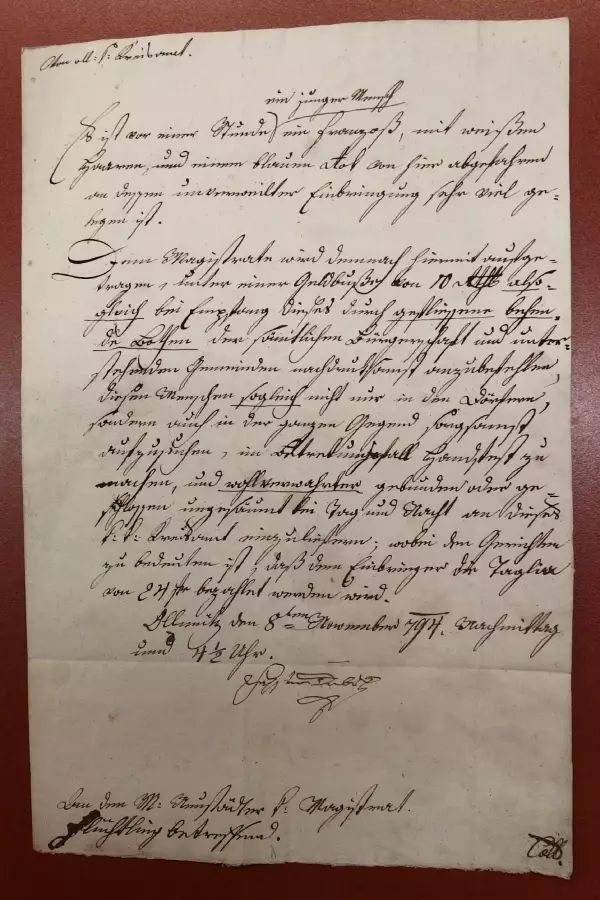 Von oll: k: Kreisamt.
ein junger Mensch
Es ist vor einer Stunde ein Franzoß, mit weißen
Haaren, und einem blauen Rok von hier abgefahren
an dessen unverweilter Einbringung sehr viel ge-
legen ist.
Dem Magistrate wird demnach hiermit aufge-
tragen, unter einer Geldbuße von 10 also-
gleich bei Empfang dieses durch geflissene behen-
de Bothen der sämtlichen Bürgerschaft und unter-
stehenden Gemeinden nachdruksamst anzubefehlen,
diesen Menschen sogleich nicht nur in den Dörfern,
sondern auch in der ganzen Gegend sorgsamst
aufzusuchen, im Betretungsfall Handfest zu
machen, und wohlverwahrter gebunden oder ge-
schlossen ungesäumt bei Tag und Nacht an dieses
k: k: Kreisamt einzuliefern: wobei den Gerichten
zu bedeuten ist, daß dem Einbringer die Taglia
von 24 fr bezahlet werden wird.
Ollmütz den 8ten November 794. Nachmittag
um 4½ Uhr.
An den M: Neustädter k: Magistrat.
Flüchtling betreffend.